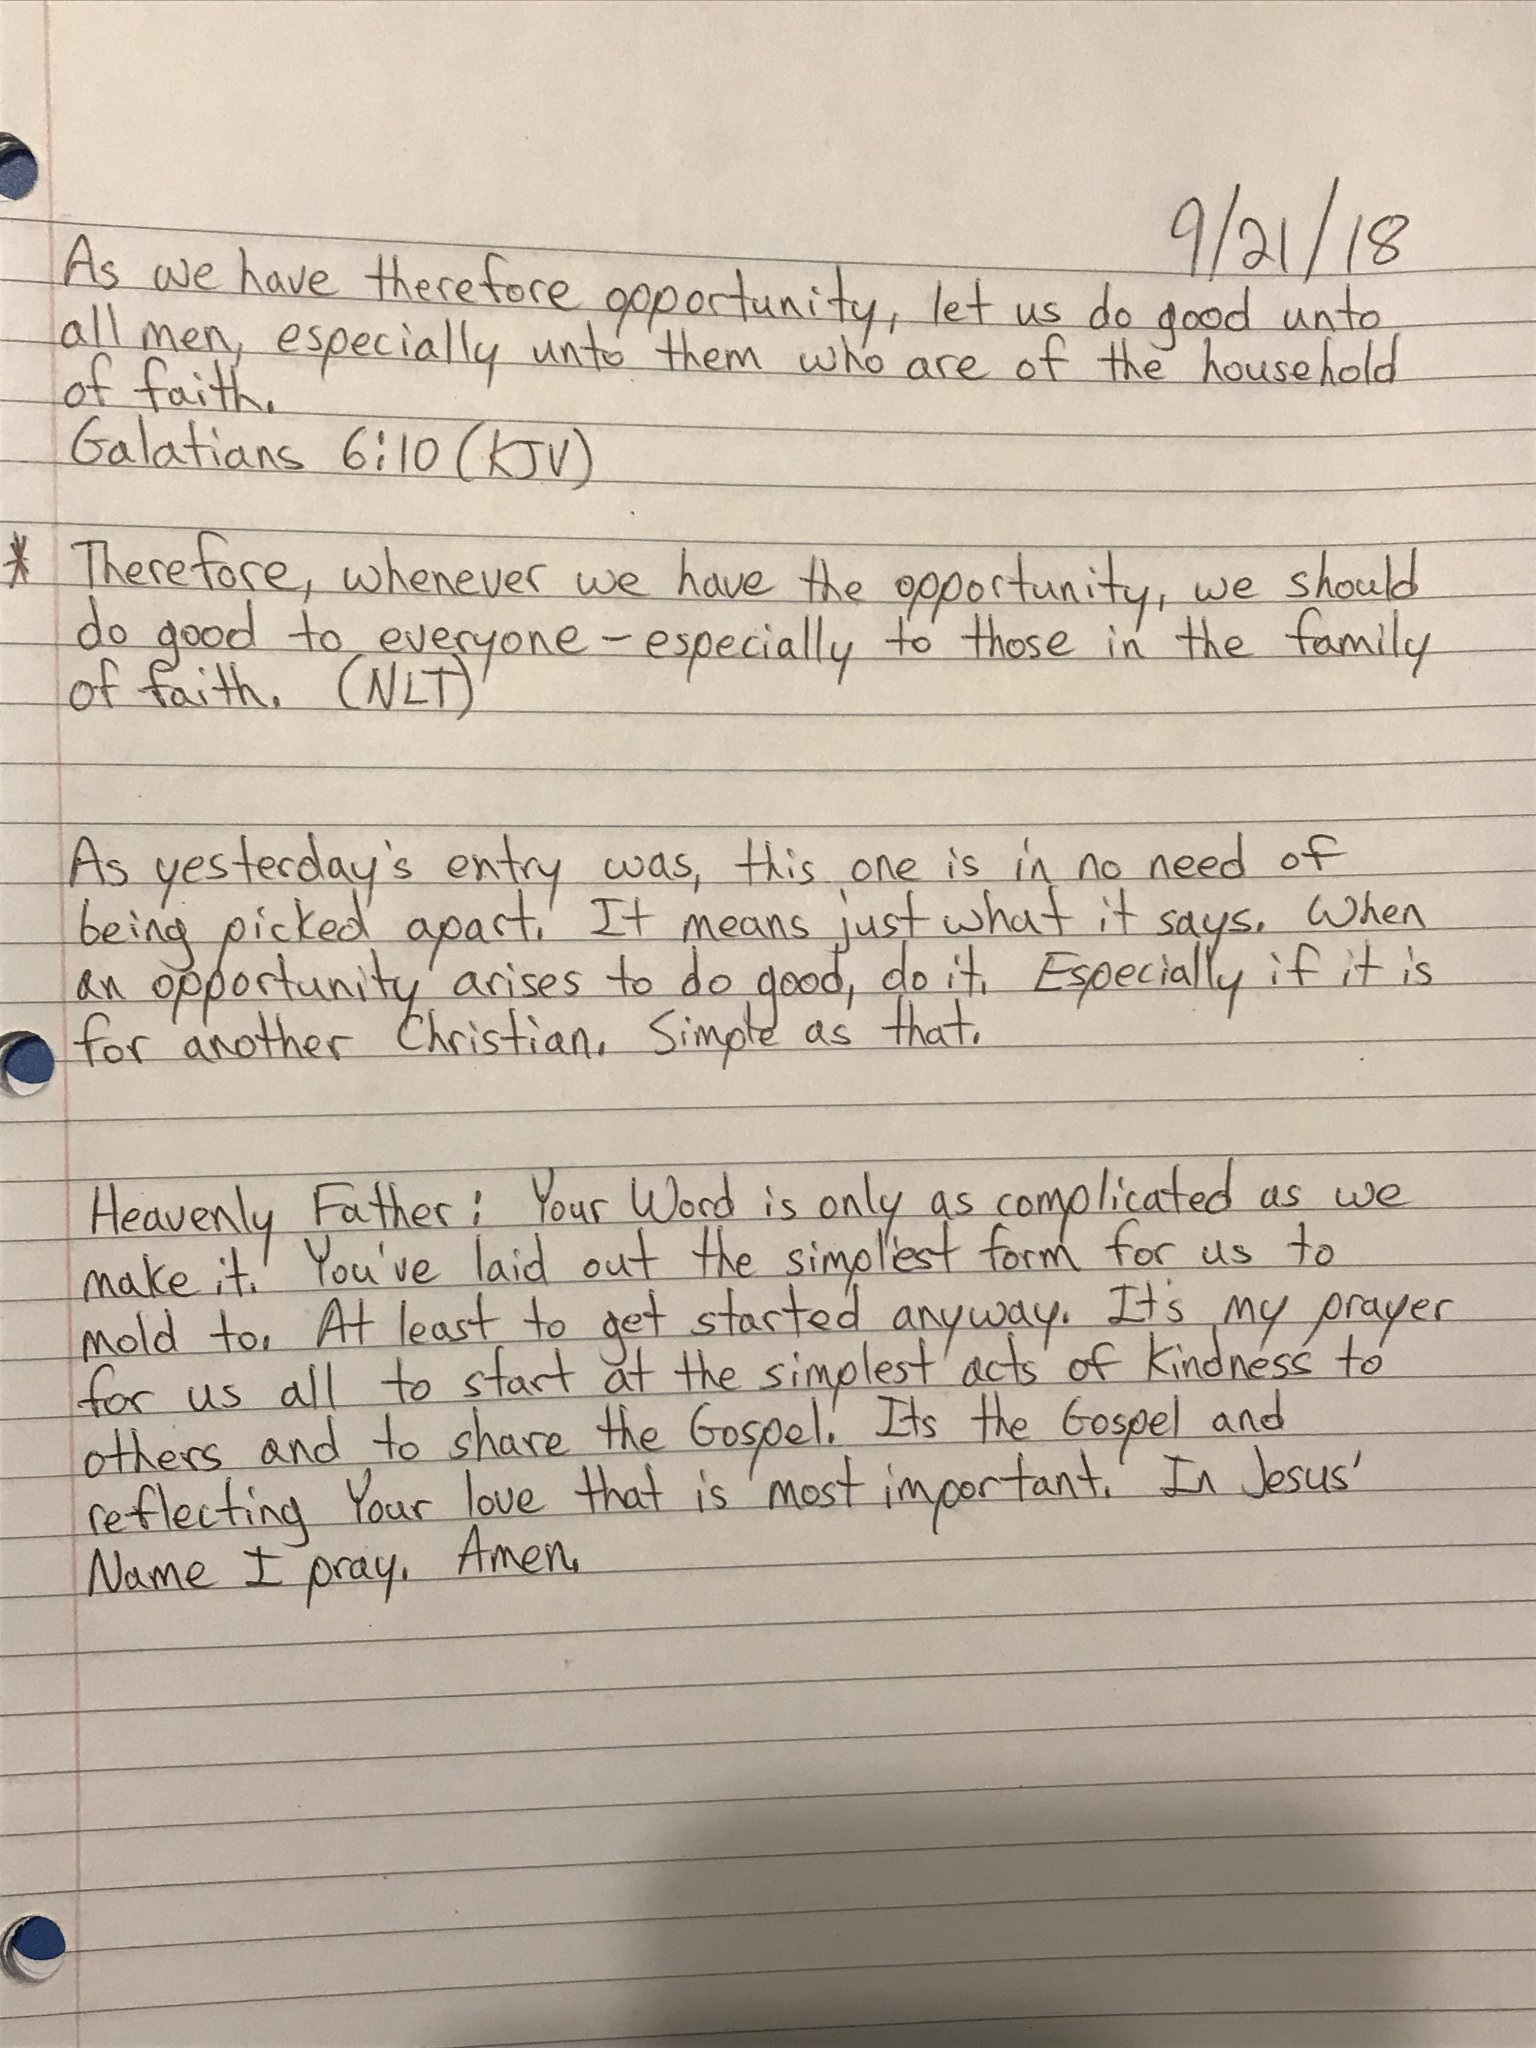 9/21/18
As we have therefore opportunity, let us do good unto
all men, especially unto them who are of the household
of faith.
Galatians 6:10 (KJV)
* Therefore, whenever we have the opportunity, we should
do good to everyone - especially to those in the family
of faith. (NLT)
As yesterday's entry was, this one is in no need of
being picked apart. It means just what it says. When
an opportunity arises to do good, do it. Especially if it is
for another Christian. Simple as that.
Heavenly Father: Your Word is only as complicated as we
make it. You've laid out the simpliest form for us to
mold to. At least to get started anyway. It's my prayer
for us all to start at the simplest acts of kindness to
others and to share the Gospel. Its the Gospel and
reflecting Your love that is most important. In Jesus'
Name I pray. Amen.